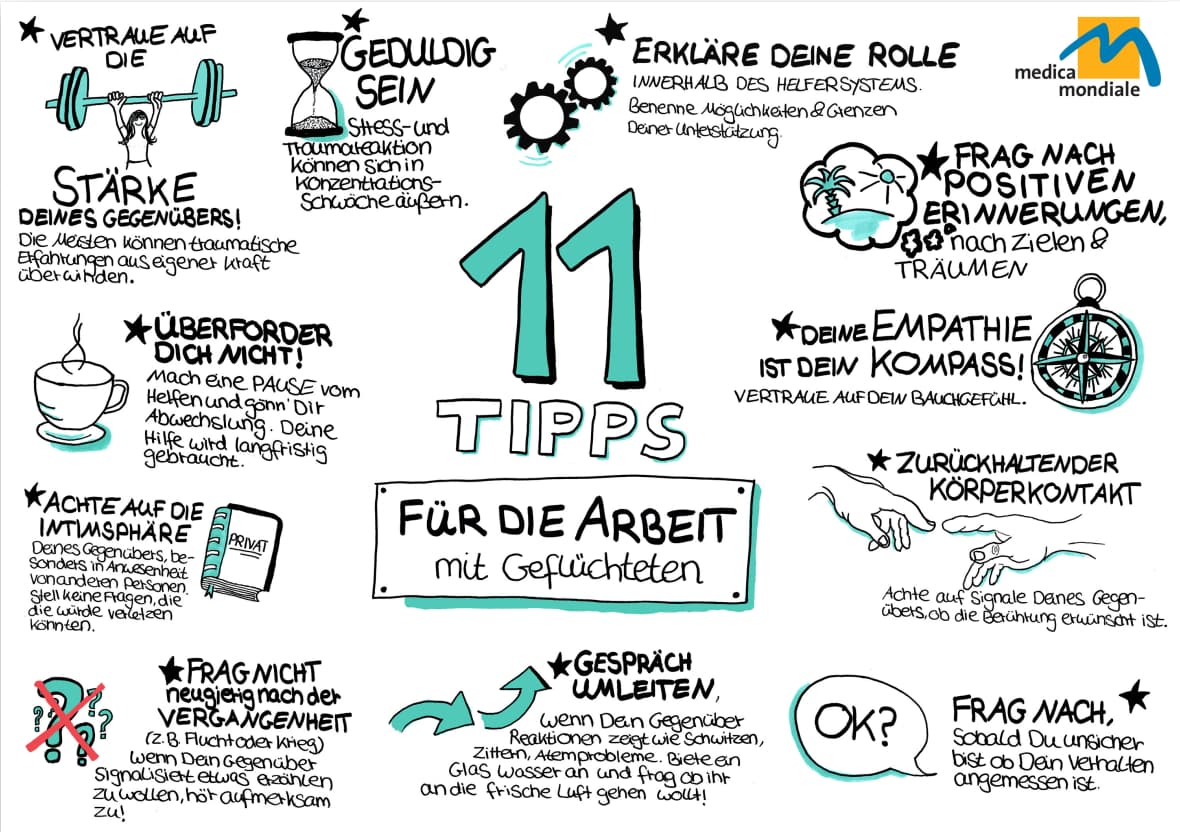 VERTRAUE AUF
DIE
STÄRKE
DEINES GEGENÜBERS!
Die Meisten können traumatische
Erfahrungen aus eigener Kraft
überwinden.
GEDULDIG
SEIN
Stress- und
Traumareaktion
können sich in
Konzentrations-
Schwäche äußern.
ERKLÄRE DEINE ROLLE
INNERHALB DES HELFERSYSTEMS.
Benenne Möglichkeiten & Grenzen
Deiner Unterstützung.
medica
mondiale
FRAG NACH
POSITIVEN
ERINNERUNGEN,
nach Zielen &
TRÄUMEN
11
TIPPS
FÜR DIE ARBEIT
mit Geflüchteten
ÜBERFORDER
DICH NICHT!
Mach eine PAUSE vom
Helfen und gönn' Dir
Abwechslung. Deine
Hilfe wird langfristig
gebraucht.
DEINE EMPATHIE
IST DEIN KOMPASS!
VERTRAUE AUF DEIN BAUCHGEFÜHL.
ACHTE AUF DIE
INTIMSPHÄRE
Deines Gegenübers, be-
sonders in Anwesenheit
von anderen Personen.
Stell keine Fragen, die
die Würde verletzen
könnten.
PRIVAT
ZURÜCKHALTENDER
KÖRPERKONTAKT
Achte auf Signale Deines Gegen-
übers, ob die Berührung erwünscht ist.
FRAG NICHT
neugierig nach der
VERGANGENHEIT
(z.B. Flucht oder Krieg)
wenn Dein Gegenüber
Signalisiert etwas erzählen
zu wollen, hör aufmerksam
zu!
? ? ? ? ?
GESPRÄCH
UMLEITEN,
wenn Dein Gegenüber
Reaktionen zeigt wie Schwitzen,
Zittern, Atemprobleme. Biete ein
Glas Wasser an und frag ob ihr
an die frische Luft gehen wollt!
OK?
FRAG NACH,
Sobald Du unsicher
bist ob Dein Verhalten
angemessen ist.